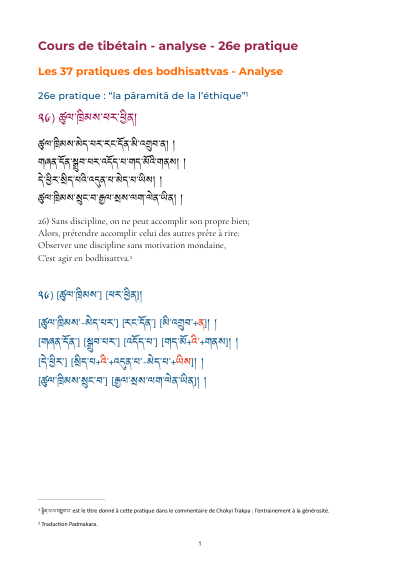 Cours de tibétain - analyse - 26e pratique
Les 37 pratiques des bodhisattvas - Analyse
26e pratique : “la pāramitā de la l’éthique”¹
༢༦) ཚུལ་ཁྲིམས་ཕར་ཕྱིན།
ཚུལ་ཁྲིམས་མེད་པར་རང་དོན་མི་འགྲུབ་ན། །
གཞན་དོན་སྒྲུབ་པར་འདོད་པ་གད་མོའི་གནས། །
དེ་ཕྱིར་སྲིད་པའི་འདུན་པ་མེད་པ་ཡིས། །
ཚུལ་ཁྲིམས་སྲུང་བ་རྒྱལ་སྲས་ལག་ལེན་ཡིན། །
26) Sans discipline, on ne peut accomplir son propre bien;
Alors, prétendre accomplir celui des autres prête à rire:
Observer une discipline sans motivation mondaine,
C’est agir en bodhisattva.²
༢༦) [ཚུལ་ཁྲིམས་] [ཕར་ཕྱིན]།
[ཚུལ་ཁྲིམས་-མེད་པར་] [རང་དོན་] [མི་འགྲུབ་+ན]། །
[གཞན་དོན་] [སྒྲུབ་པར་] [འདོད་པ་] [གད་མོ+འི་+གནས]། །
[དེ་ཕྱིར་] [སྲིད་པ+འི་+འདུན་པ་-མེད་པ་+ཡིས]། །
[ཚུལ་ཁྲིམས་སྲུང་བ་] [རྒྱལ་སྲས་ལག་ལེན་ཡིན]། །
est le titre donné à cette pratique dans le commentaire de Chokyi Trakpa : l’entrainement à la générosité.
² Traduction Padmakara.
1